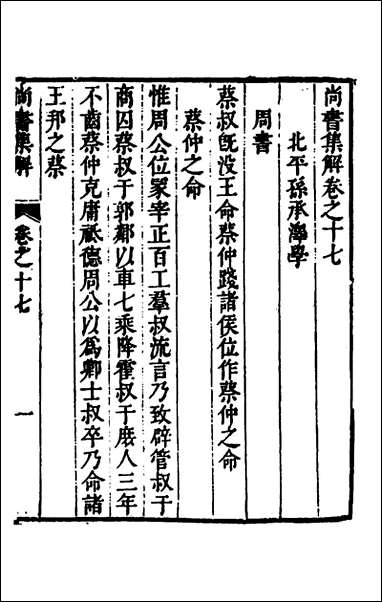 尚書集解卷之十七
北平孫承澤學
周書
蔡叔既没王命蔡仲踐諸侯位作蔡仲之命
蔡仲之命
惟周公位冢宰正百工羣叔流言乃致辟管叔于
商囚蔡叔于郭鄰以車七乘降霍叔于庶人三年
不齒蔡仲克庸祗德周公以爲卿士叔卒乃命諸
王邦之蔡
尚書集解
卷之十七
一